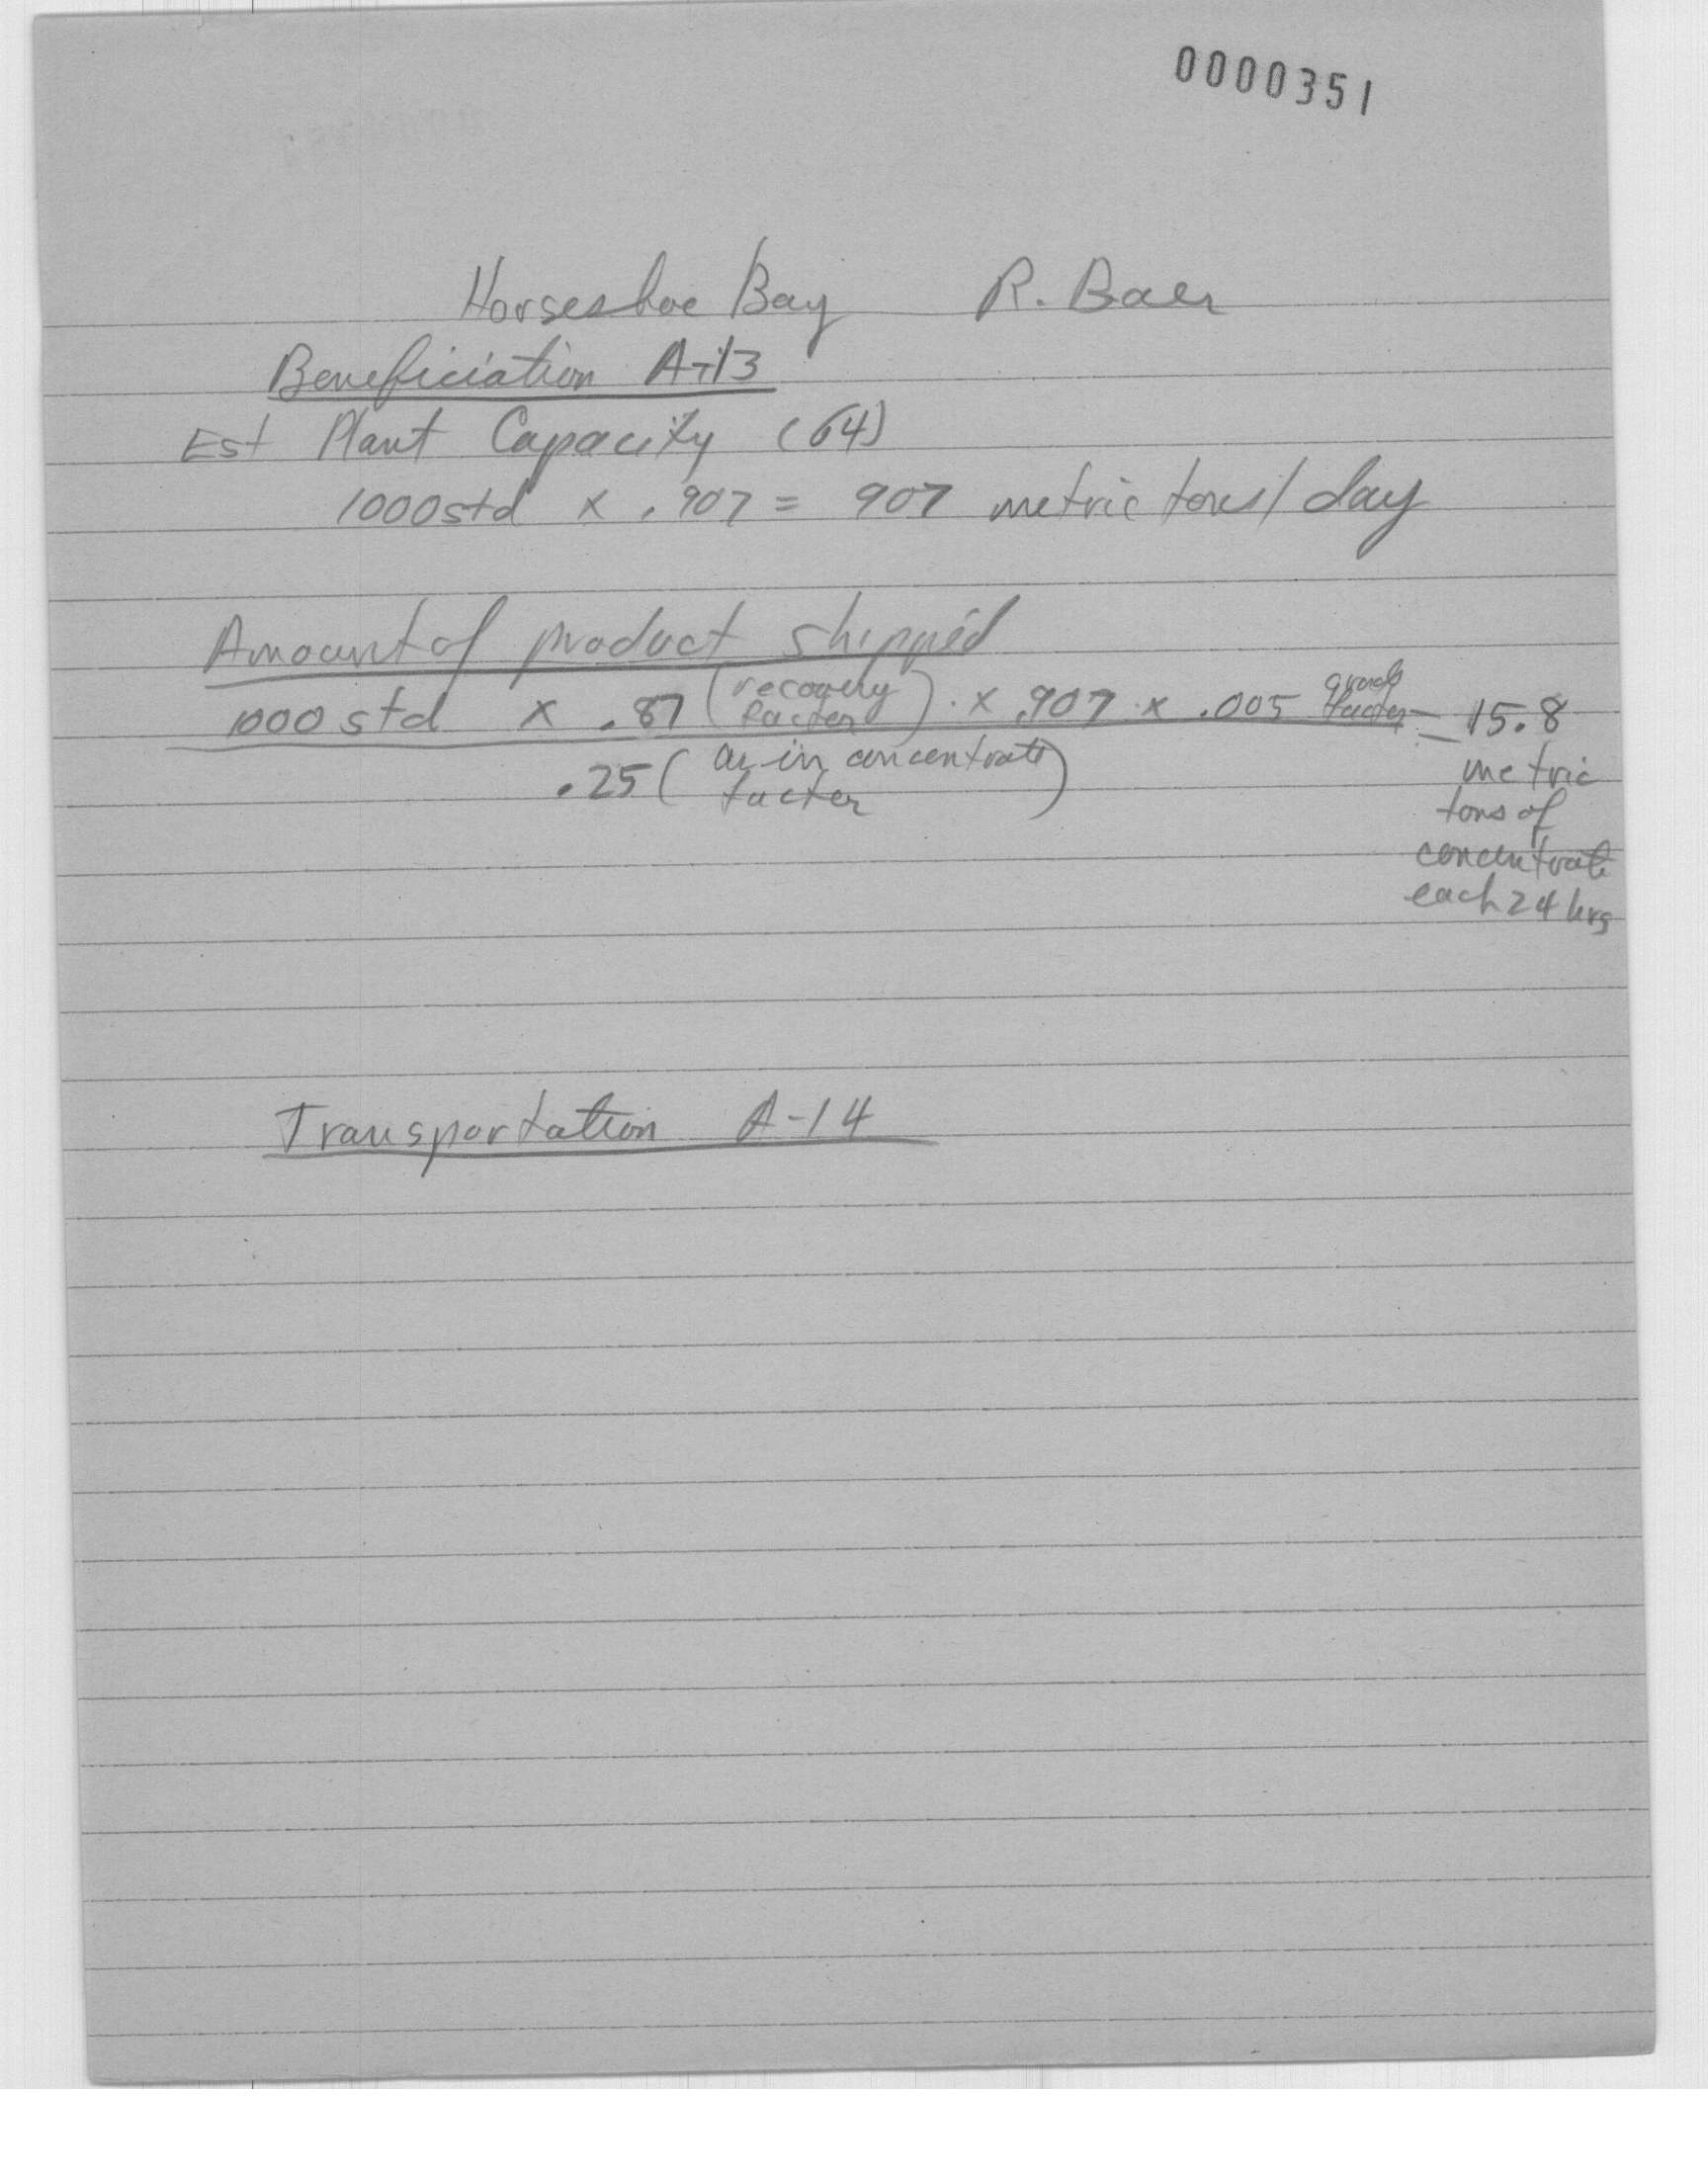 0000351
Horseshoe Bay R. Baer
Beneficiation A-13
Est Plant Capacity (64)
1000 std x .907 = 907 metric tons/day
Amount of product shipped
1000 std x .87 (recovery factor) x .907 x .005 grade factor = 15.8
.25 (as in concentrate factor)
metric
tons of
concentrate
each 24 hrs
Transportation A-14